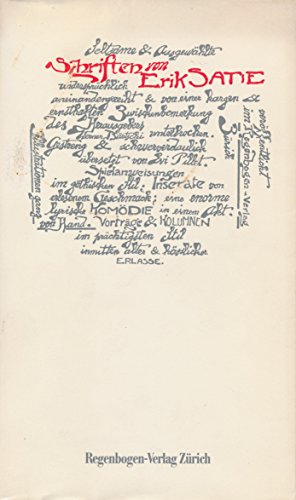 Seltsame & Ausgewählte
Schriften von
Erik SATIE
widersprüchlich
aneinandergereiht & von einer kargen &
ernsthaften Zwischenbemerkung
des Herausgebers
unterbrochen.
& schwerverdaulich
übersetzt von Evi Pillet
Spielanweisungen
im gotischen Stil. Inserate von
erlesenem Geschmack; eine enorme
lyrische KOMÖDIE in einem Akt.
Vorträge & KOLUMNEN
im prächtigsten Stil
inmitten alter & köstlicher
ERLASSE.
Illustrationen ganz
von Hand.
veröffentlicht
im Regenbogen-Verlag
Zürich
Regenbogen-Verlag Zürich